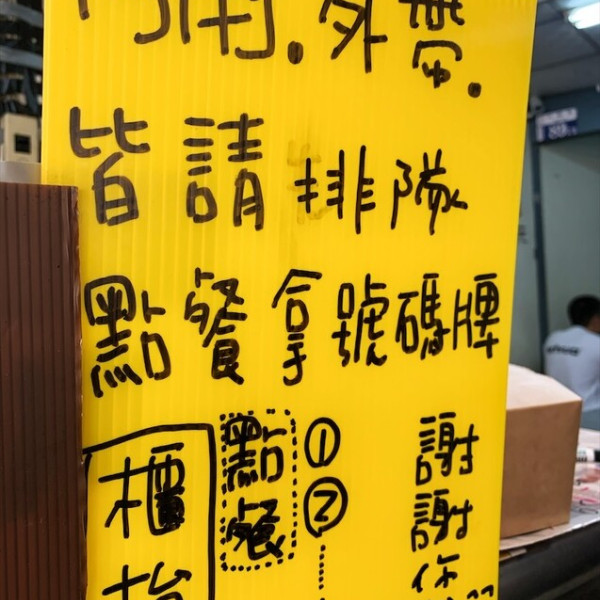 內用.外帶.
皆請排隊
點餐拿號碼牌
櫃
點餐
①
②
謝謝你